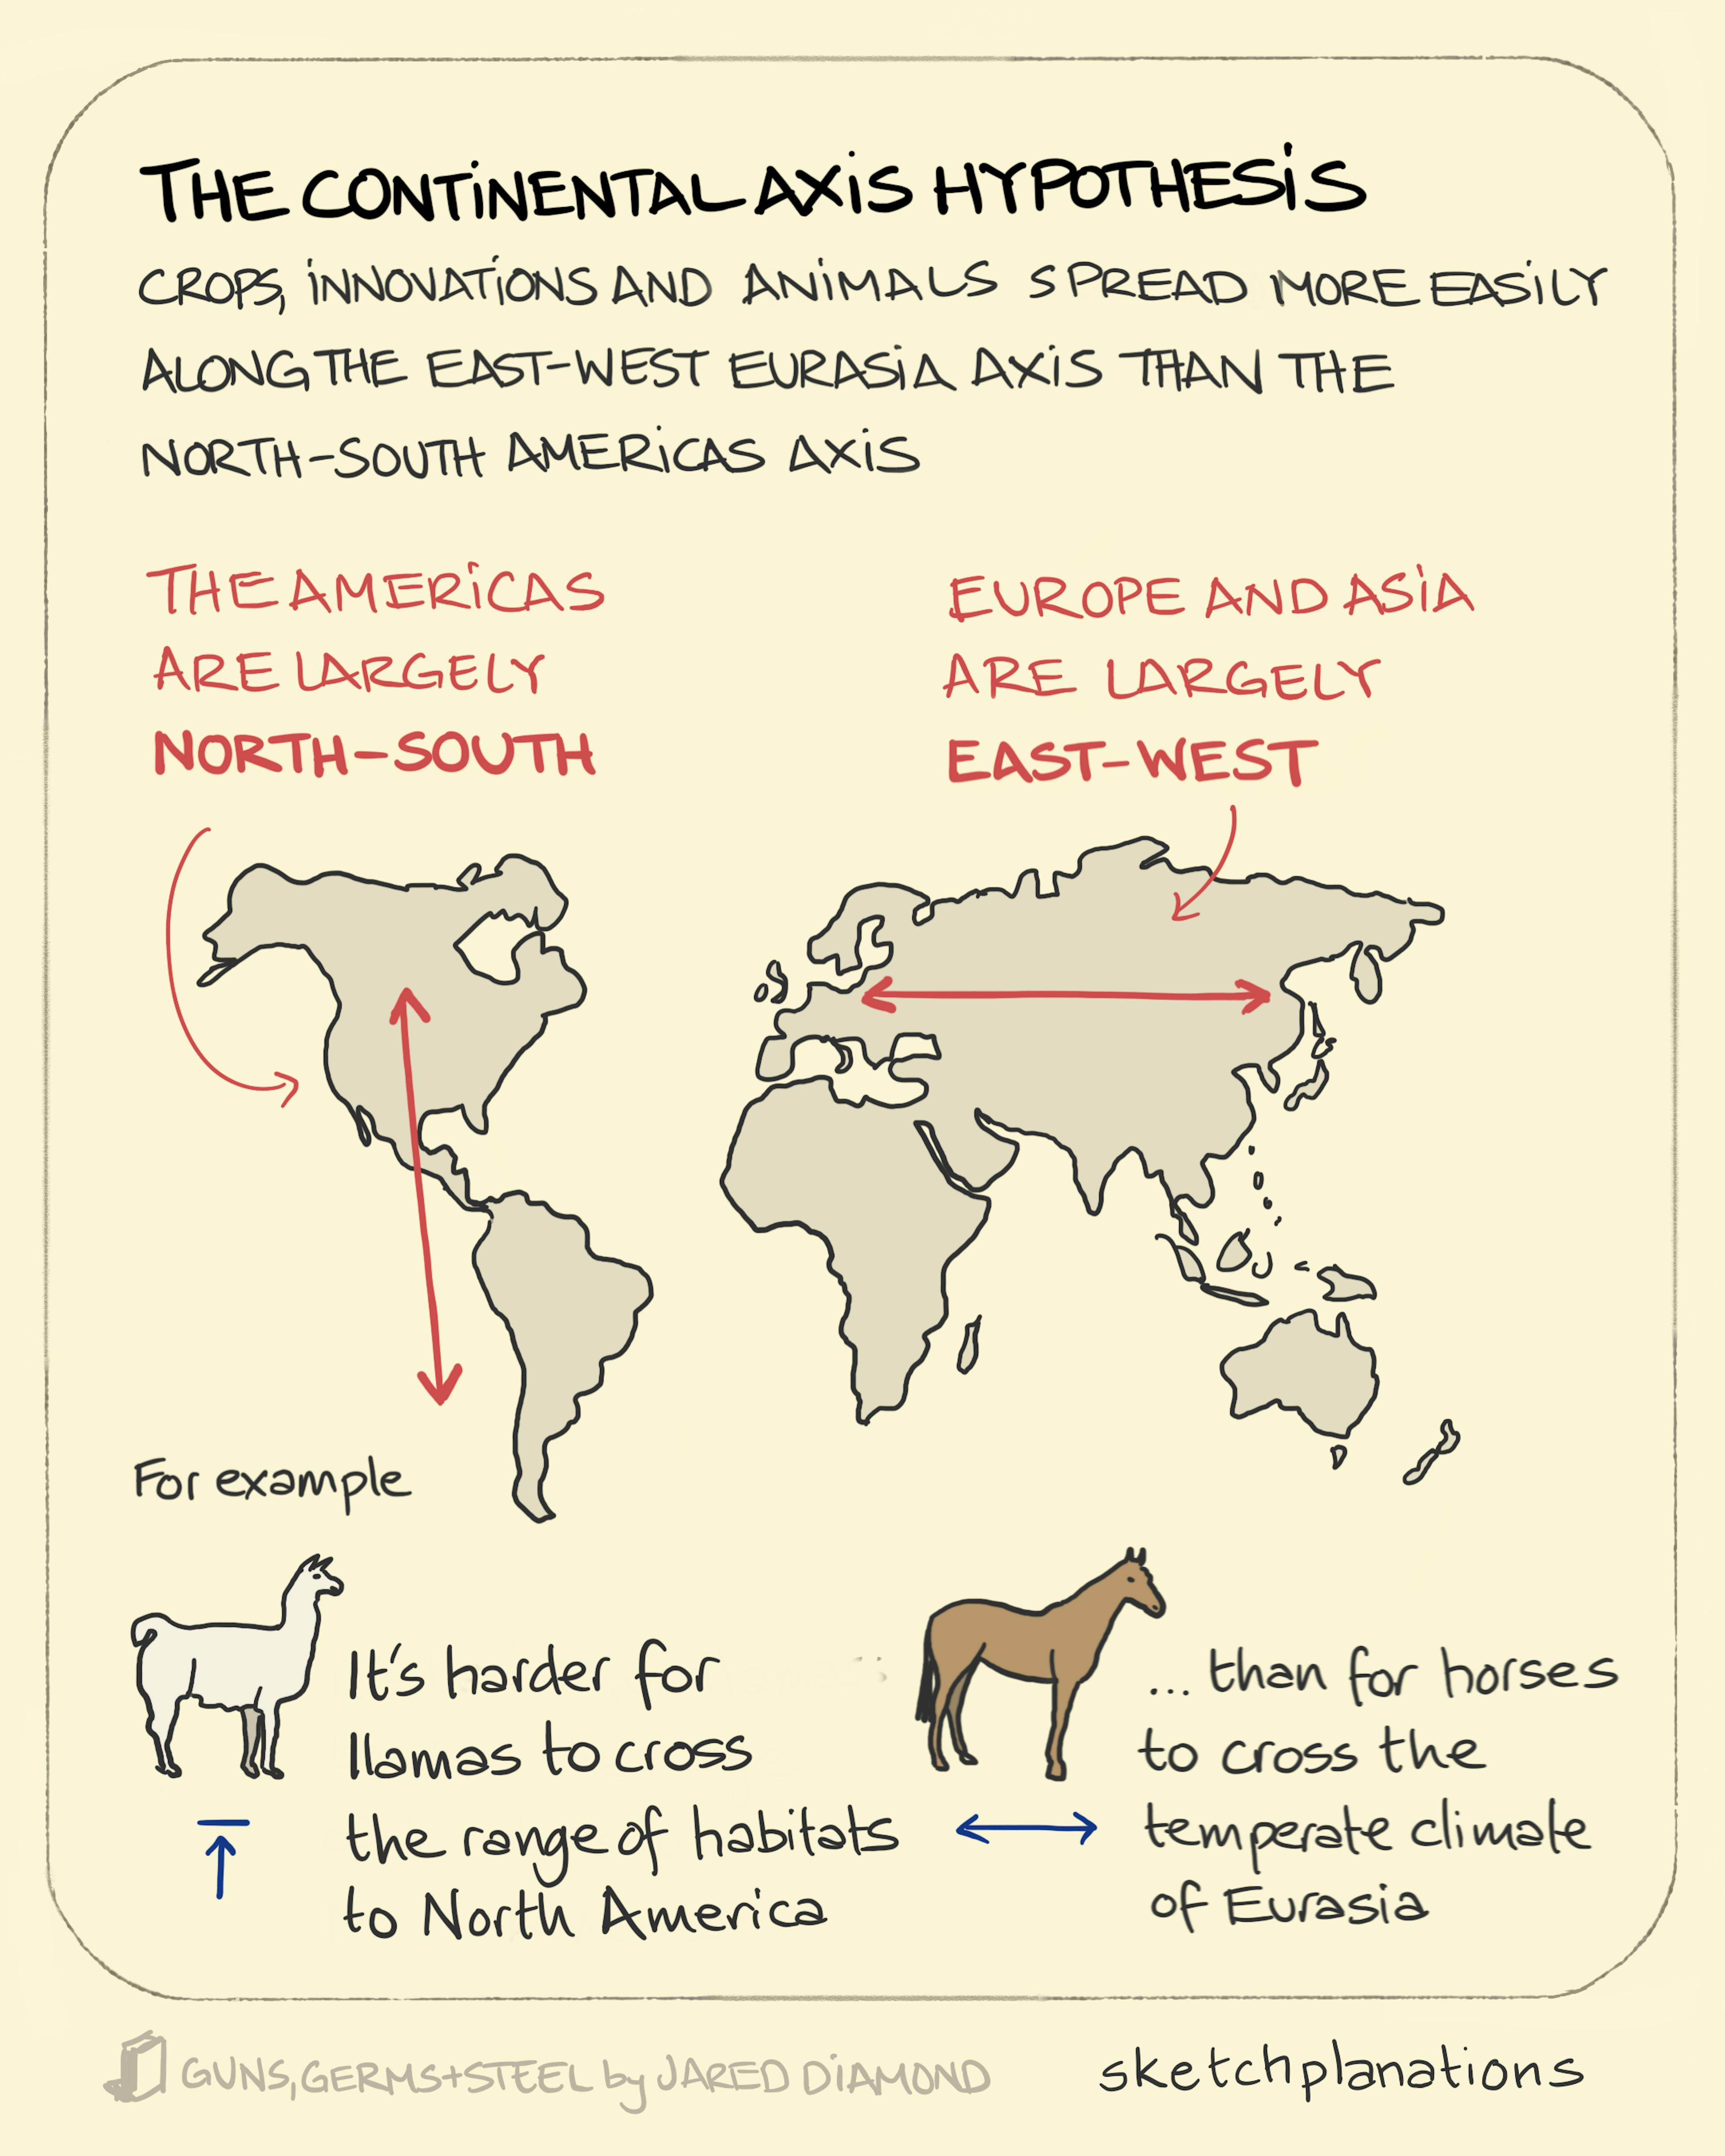 THE CONTINENTAL AXIS HYPOTHESIS
CROPS, INNOVATIONS AND ANIMALS SPREAD MORE EASILY
ALONG THE EAST-WEST EURASIA AXIS THAN THE
NORTH-SOUTH AMERICAS AXIS
THE AMERICAS
ARE LARGELY
NORTH-SOUTH
EUROPE AND ASIA
ARE LARGELY
EAST-WEST
For example
It's harder for
llamas to cross
the range of habitats
to North America
... than for horses
to cross the
temperate climate
of Eurasia
GUNS, GERMS+STEEL by JARED DIAMOND
sketchplanations